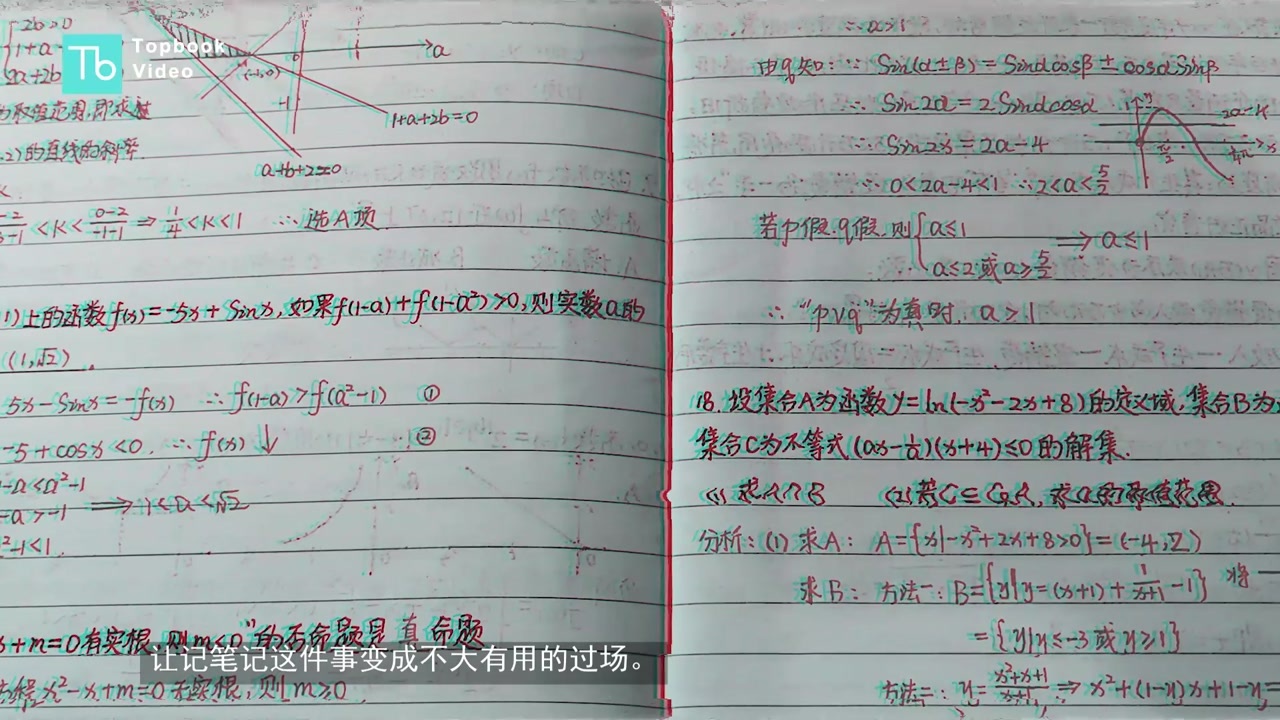 2b>0
a
1+a
a+2b
(-1,0)
-1
1+a+2b=0
2)的直线的斜率.
a+b+2=0
<K< (0-2)/(-1-1) ⇒ 1/4<K<1 ∴选A项.
1)上的函数f(x)=-5x+Sinx,如果f(1-a)+f(1-a²)>0,则实数a的
(1,√2).
5x-Sinx=-f(x) ∴f(1-a)>f(a²-1) ①
-5+cosx<0. ∴f(x)↓ ②
-a<a²-1
-a>-1 ⇒ 1<a<√2
²-1<1
x+m=0有实根,则m≤0"的否命题是 真 命题
x²-x+m=0无实根,则m>0
∴a>1
由q知:∵Sin(α±β)=Sinαcosβ±cosαSinβ
∴Sin2α=2Sinαcosα
∴Sin2x=2a-4
∴0<2a-4<1 ∴2<a<5/2
若p假.q假.则{a≤1
a≤2或a≥5/2
⇒a≤1
∴"p∨q"为真时,a>1
18.设集合A为函数y=ln(-x²-2x+8)的定义域,集合B为
集合C为不等式(ax-1/a)(x+4)≤0的解集.
(1)求A∩B (2)若C⊆∁RA,求a的取值范围.
分析:(1)求A: A={x|-x²+2x+8>0}=(-4,2)
求B: 方法一:B={y|y=(x+1)+1/(x+1)-1} 将一
={y|y≤-3或y≥1}
方法二:y=(x²+x+1)/(x+1) ⇒x²+(1-y)x+1-y=
Tb Topbook
Video
让记笔记这件事变成不大有用的过场。